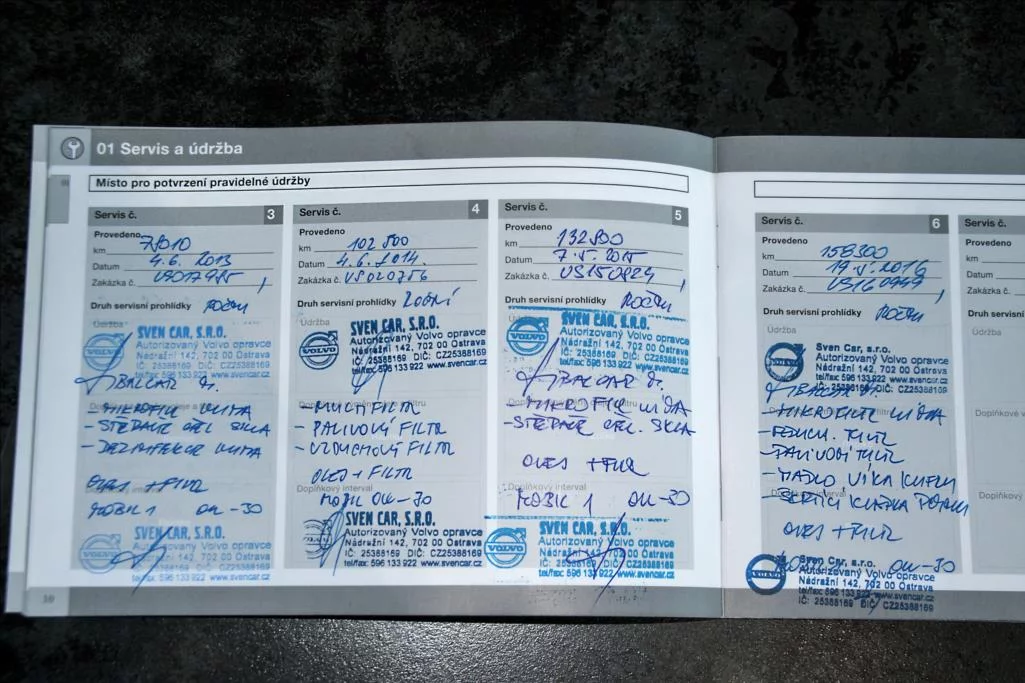 01 Servis a údržba
Místo pro potvrzení pravidelné údržby
Servis č. 3
Provedeno
km 78010
Datum 4.6. 2013
Zakázka č.
Druh servisní prohlídky Roční
Údržba
SVEN CAR, S.R.O.
Autorizovaný Volvo opravce
Nádražní 142, 702 00 Ostrava
IČ: 25388169 DIČ: CZ25388169
tel/fax: 596 133 922 www.svencar.cz
VOLVO
- MIKROFILTR
- STĚRAČE ČEL SKLA
- DEZINFEKCE
Doplňkový interval
OLEJ + FILTR
MOBIL 1 0W-30
SVEN CAR, S.R.O.
Autorizovaný Volvo opravce
Nádražní 142, 702 00 Ostrava
IČ: 25388169 DIČ: CZ25388169
tel/fax: 596 133 922 www.svencar.cz
VOLVO
10
Servis č. 4
Provedeno
km 102 500
Datum 4.6. 2014.
Zakázka č. VS020756
Druh servisní prohlídky ROČNÍ
Údržba
SVEN CAR, S.R.O.
Autorizovaný Volvo opravce
Nádražní 142, 702 00 Ostrava
IČ: 25388169 DIČ: CZ25388169
tel/fax: 596 133 922 www.svencar.cz
VOLVO
- MULTIFILTR
- PALIVOVÝ FILTR
- VZDUCHOVÝ FILTR
OLEJ + FILTR
Doplňkový interval
MOBIL 0W-30
SVEN CAR, S.R.O.
Autorizovaný Volvo opravce
Nádražní 142, 702 00 Ostrava
IČ: 25388169 DIČ: CZ25388169
tel/fax: 596 133 922 www.svencar.cz
Servis č. 5
Provedeno
km 132800
Datum 7.5. 2015
Zakázka č.
Druh servisní prohlídky Roční
SVEN CAR, S.R.O.
Autorizovaný Volvo opravce
Nádražní 142, 702 00 Ostrava
IČ: 25388169 DIČ: CZ25388169
tel/fax: 596 133 922 www.svencar.cz
VOLVO
- MIKROFILTR
- STĚRAČE ČEL. SKLA
OLEJ + FILTR
Doplňkový interval
MOBIL 1 0W-30
SVEN CAR, S.R.O.
Autorizovaný Volvo opravce
Nádražní 142, 702 00 Ostrava
IČ: 25388169 DIČ: CZ25388169
tel/fax: 596 133 922 www.svencar.cz
VOLVO
Servis č. 6
Provedeno
km 158300
Datum 19.5. 2016
Zakázka č.
Druh servisní prohlídky Roční
Údržba
Sven Car, s.r.o.
Autorizovaný Volvo opravce
Nádražní 142, 702 00 Ostrava
IČ: 25388169 DIČ: CZ25388169
tel/fax: 596 133 922 www.svencar.cz
VOLVO
- MIKROFILTR
- PALIVOVÝ FILTR
- MADLO VÍKA KUFRU
OLEJ + FILTR
0W-30
Sven Car, s.r.o.
Autorizovaný Volvo opravce
Nádražní 142, 702 00 Ostrava
IČ: 25388169 DIČ: CZ25388169
tel/fax: 596 133 922 www.svencar.cz
VOLVO
Servis č.
Provedeno
km
Datum
Zakázka č.
Druh servisní
Údržba
Doplňkové
Doplňkový